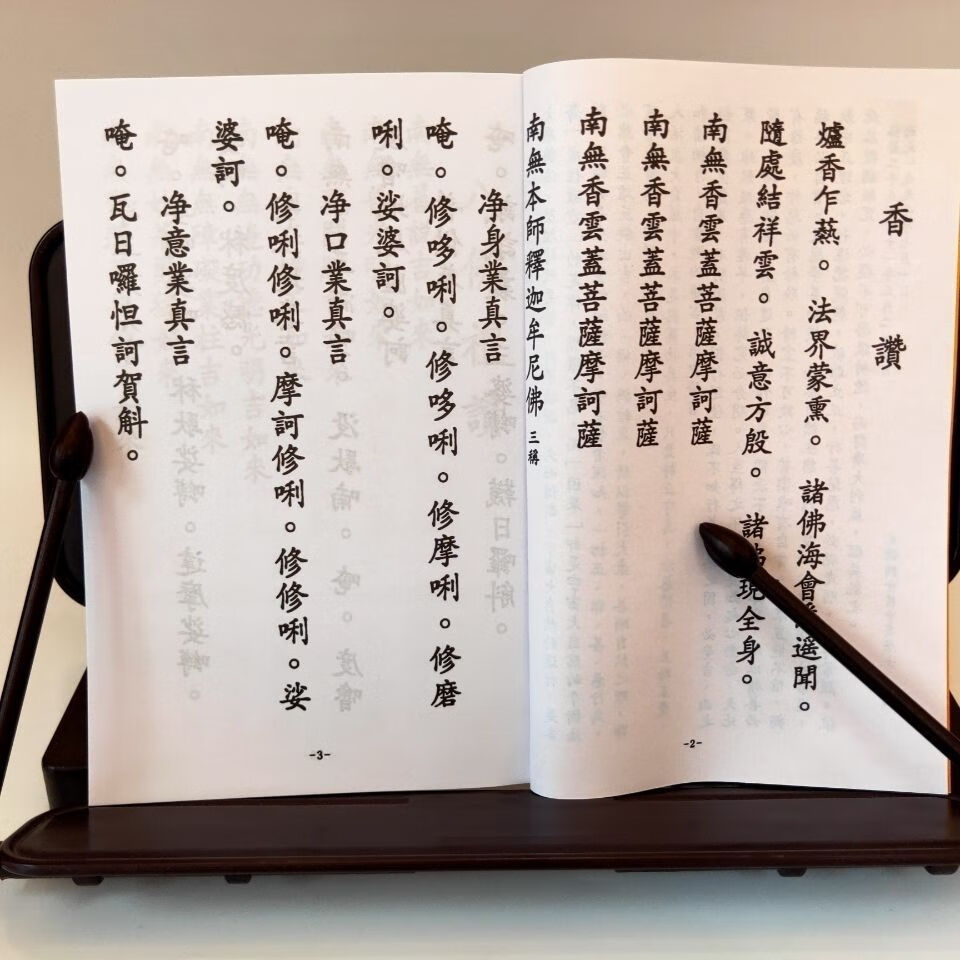 香讚
爐香乍爇。法界蒙熏。諸佛海會悉遙聞。
隨處結祥雲。誠意方殷。諸佛現全身。
南無香雲蓋菩薩摩訶薩
南無香雲蓋菩薩摩訶薩
南無香雲蓋菩薩摩訶薩
南無本師釋迦牟尼佛 三稱
-2-
净身業真言
唵。修哆唎。修哆唎。修摩唎。修磨
唎。娑婆訶。
净口業真言
唵。修唎修唎。摩訶修唎。修修唎。娑
婆訶。
净意業真言
唵。瓦日囉怛訶賀斛。
-3-